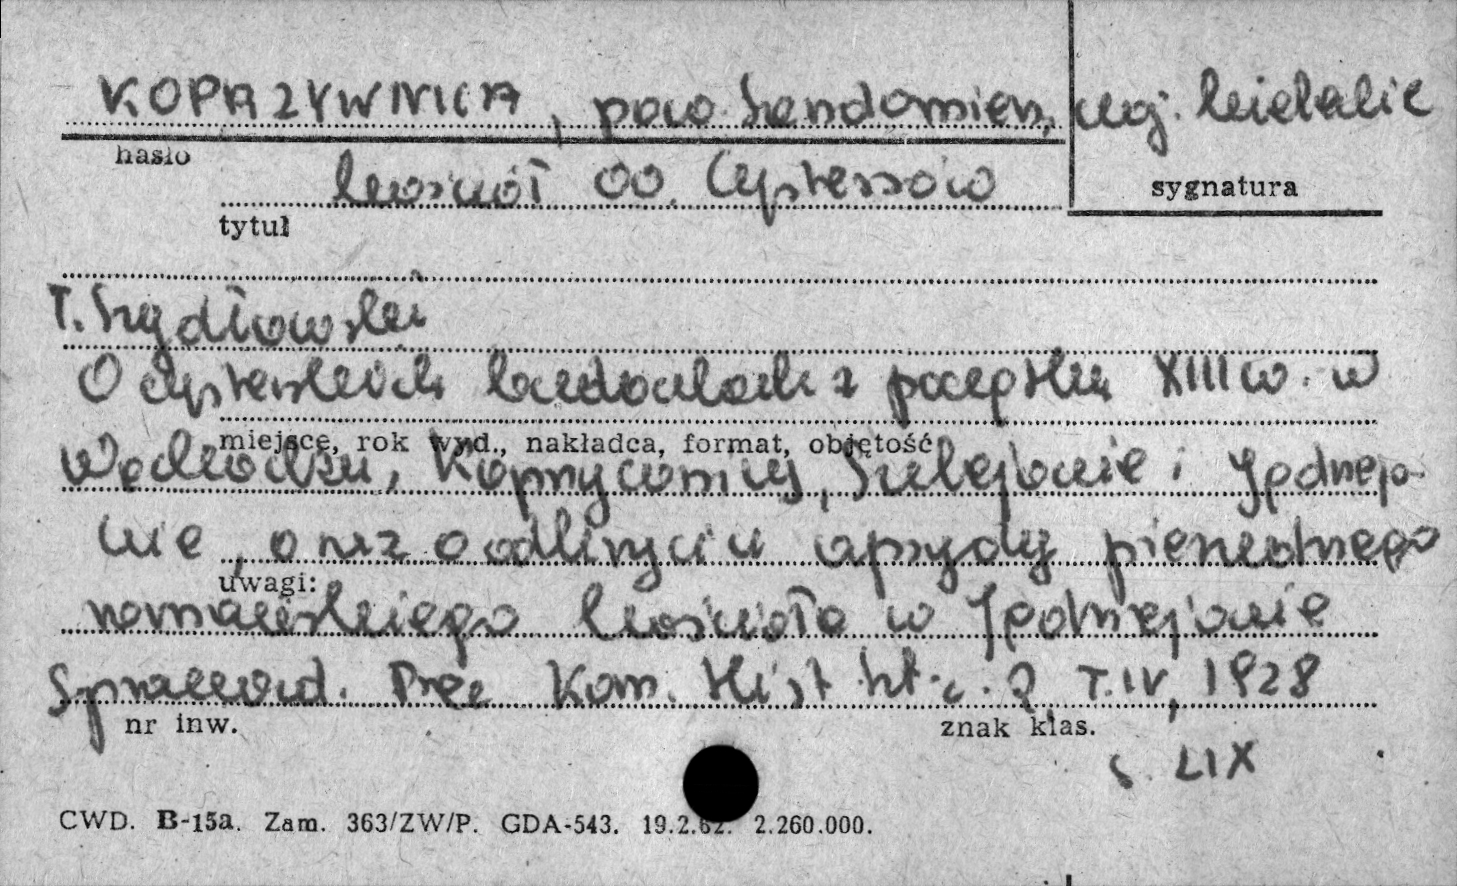 KOPRZYWNICA, pow. Sandomierz, woj. kieleckie
hasło
kościół OO. Cystersów
sygnatura
tytuł
T. Szydłowski
O cysterskich budowlach z początku XIII w. w
miejsce, rok wyd., nakładca, format, objętość
Wąchocku, Koprzywnicy, Sulejowie i Jędrzejo-
wie, oraz o odkryciu apsydy pierwotnego
uwagi:
romańskiego kościoła w Jędrzejowie
Sprawozd. Prac Kom. Hist. Szt. T. IV, 1928
nr inw.
znak klas.
s. LIX
CWD. B-15a. Zam. 363/ZW/P. GDA-543. 19.2.62. 2.260.000.